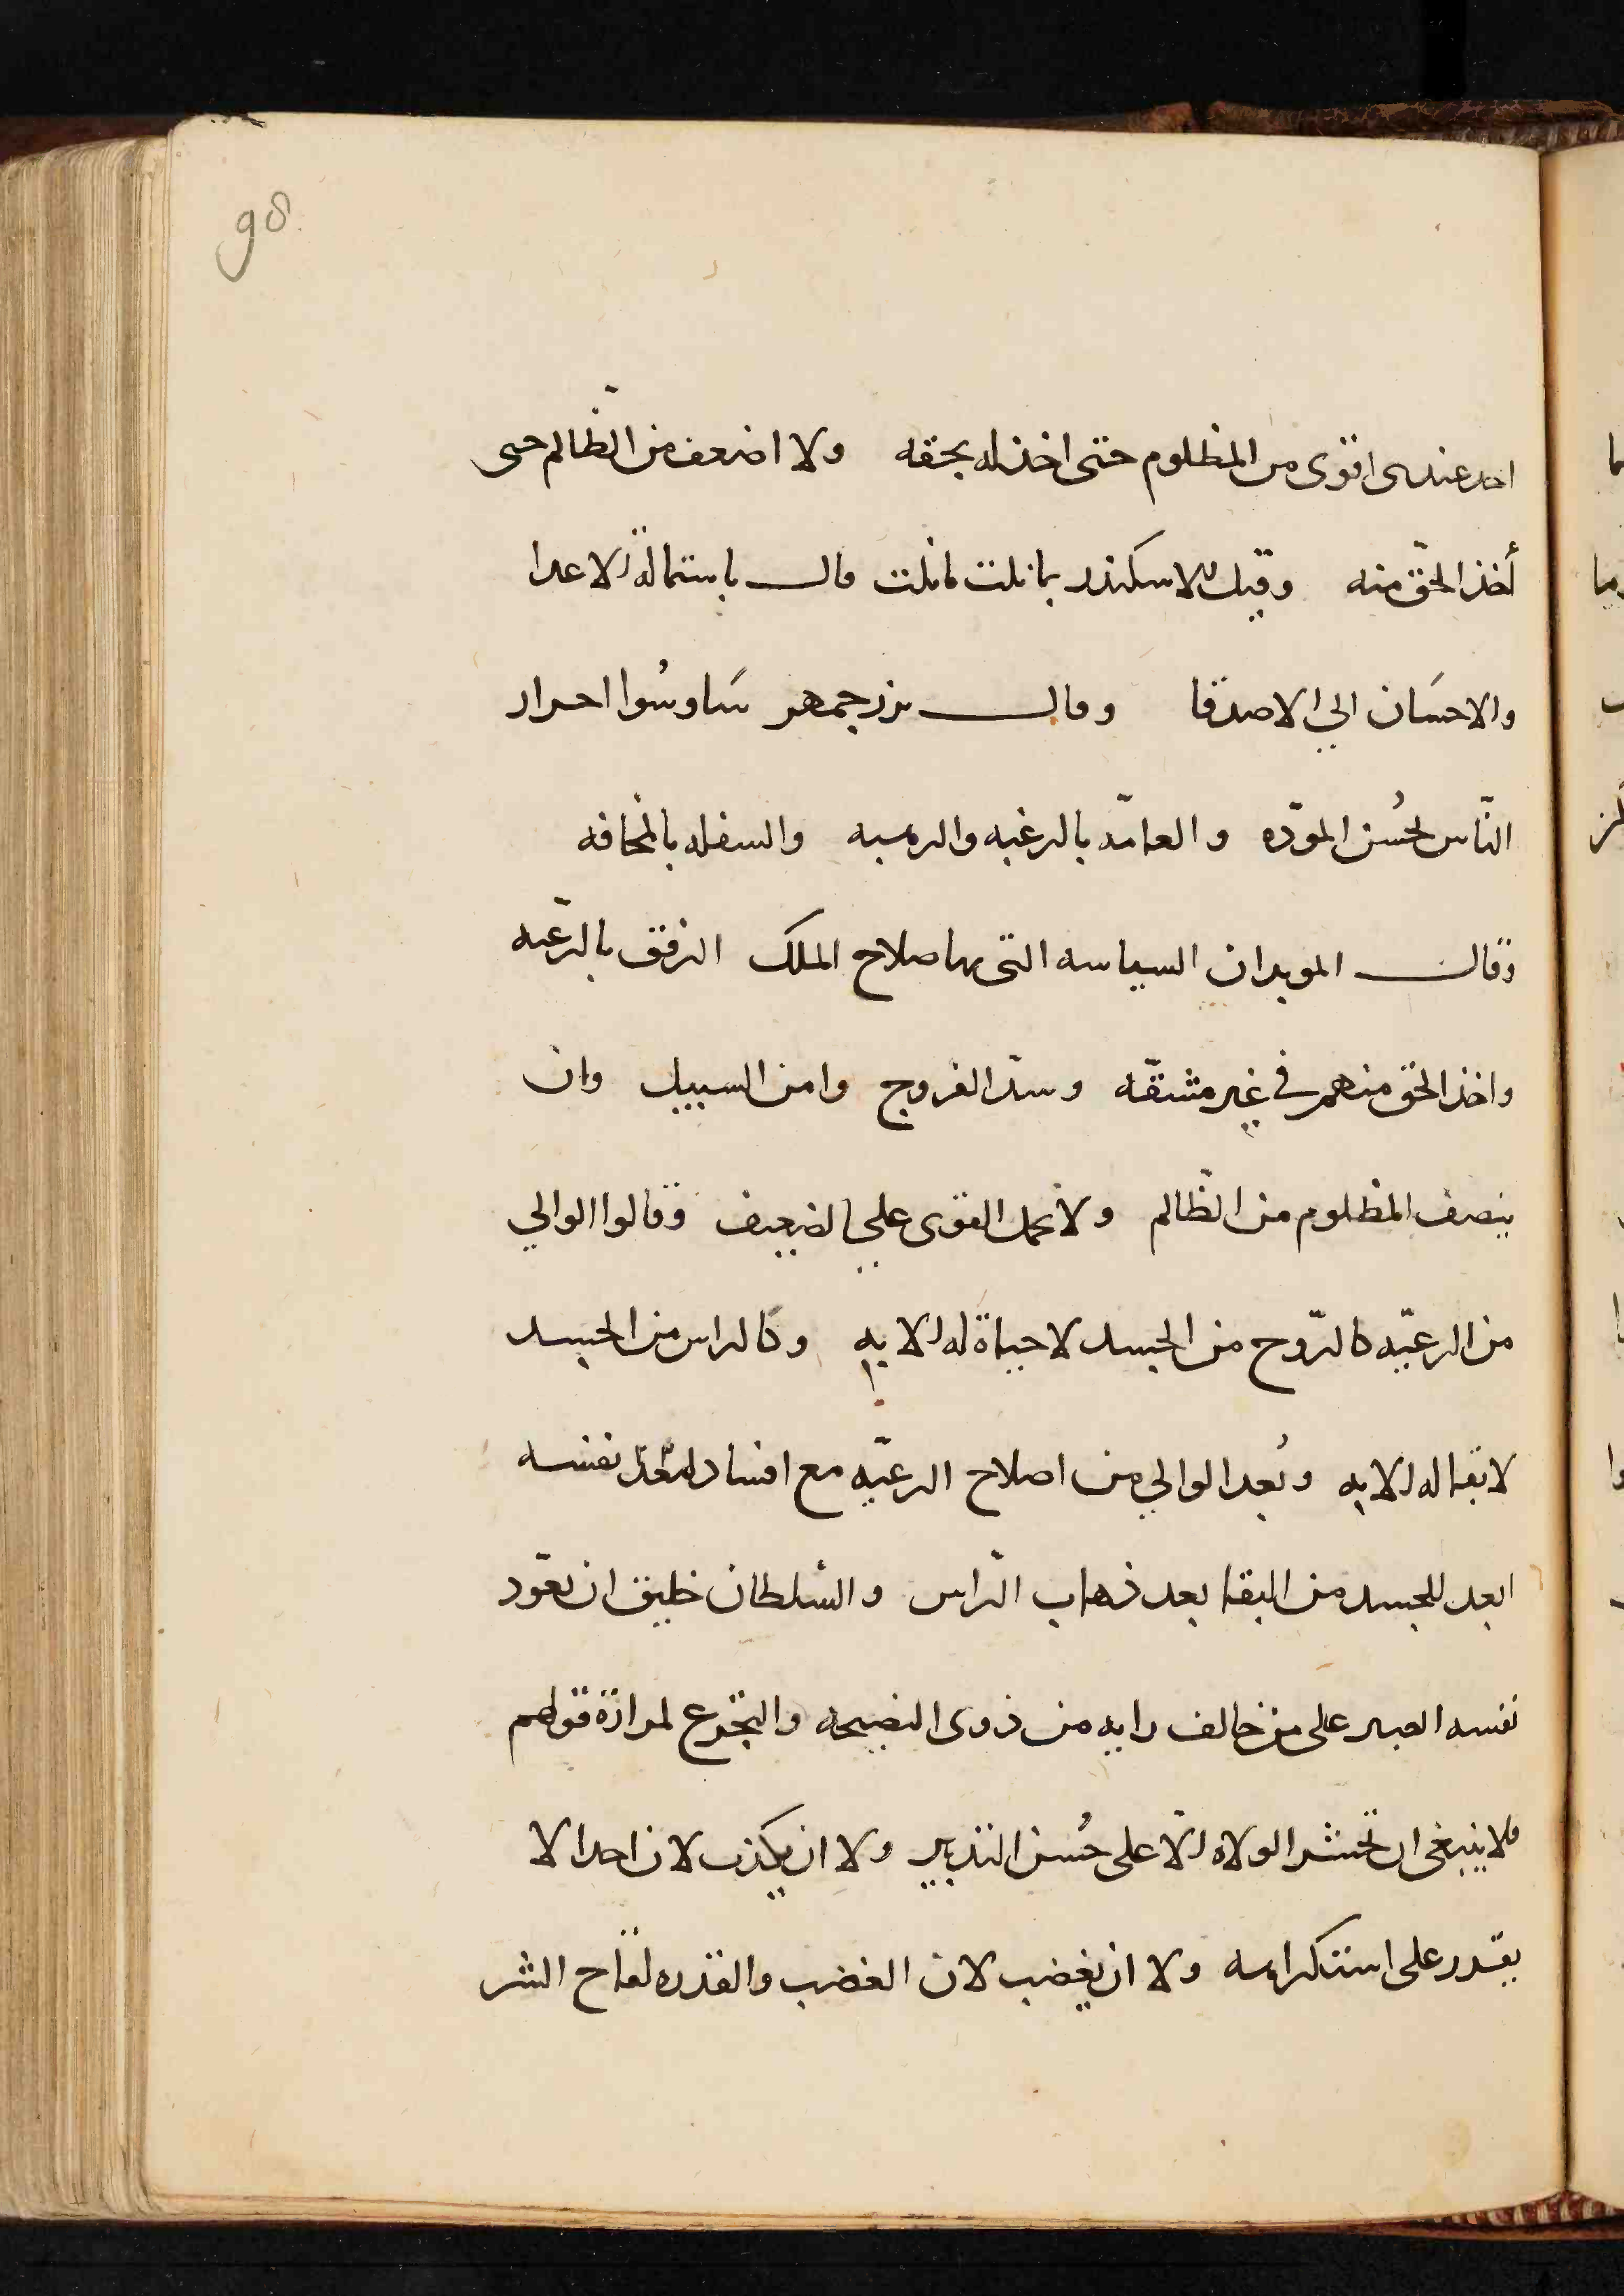 98
احد عندى اقوى من المظلوم حتى اخذ له بحقه ولا اضعف من الظّالم حتى
أخذ الحقّ منه وقيل للاسكندر بما نلت ما نلت قال باستمالة الاعدا
والاحسَان الي الاصدقا وقال بزرجمهر سَاوسُوا احرار
النّاس بحُسن المودّه والعامّه بالرغبه والرهبه والسفله بالمخافه
وقال الموبدان السياسه التى بها صلاح الملك الرفق بالرّعيه
واخذ الحق منهم في غير مشقّه وسدّ الفروج وامن السبيل وان
ينصف المظلوم من الظّالم ولا يحمل القوى علي الضعيف وقالوا الوالي
من الرعيّه كالرّوح من الجسد لا حياة له الا به وكالراس من الجسد
لا بقا له الا به وبُعد الوالي من اصلاح الرعيّه مع افساد نفسه
ابعد للجسد من البقا بعد ذهاب الرّاس والسُلطان خليق ان يعوّد
نفسه الصبر على من خالف رايه من ذوى النصيحه والتجرّع لمرارة قولهم
فلا ينبغى ان تحسد الولاه الّا على حُسن التدبير ولا ان يكذب لان احدا لا
يقدر على استكراهه ولا ان يغضب لان الغضب والقدره لقاح الشر